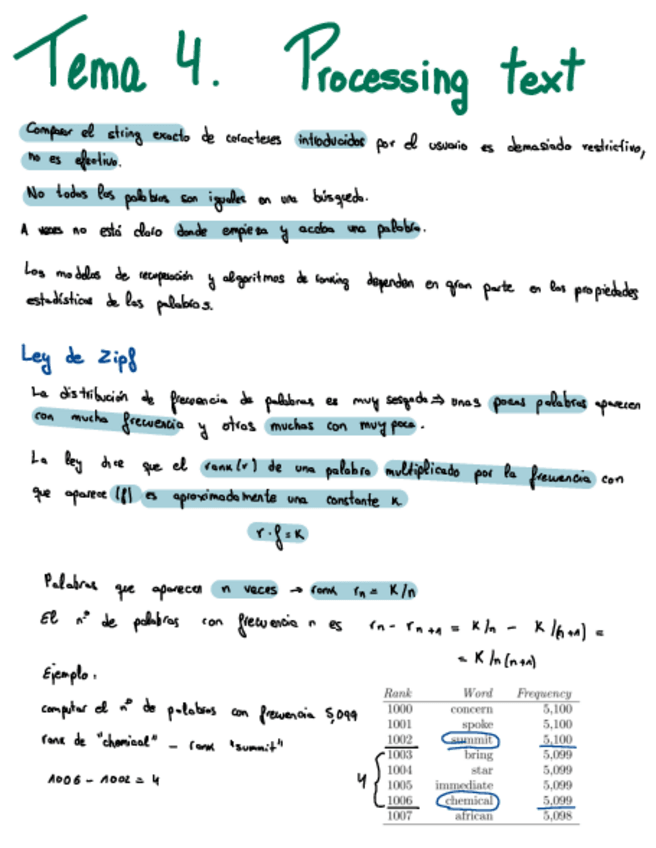 Tema 4. Processing text
Comparar el string exacto de caracteres introducidos por el usuario es demasiado restrictivo,
no es efectivo.
No todas las palabras son iguales en una búsqueda.
A veces no está claro donde empieza y acaba una palabra.
Los modelos de recuperación y algoritmos de ranking dependen en gran parte en las propiedades
estadísticas de las palabras.
Ley de Zipf
La distribución de frecuencia de palabras es muy sesgada ⇒ unas pocas palabras aparecen
con mucha frecuencia y otras muchas con muy poca.
La ley dice que el rank (r) de una palabra multiplicado por la frecuencia con
que aparece (f) es aproximadamente una constante K
r · f = K
Palabras que aparecen n veces → rank rn = K/n
El nº de palabras con frecuencia n es rn - rn+1 = K/n - K/(n+1) =
= K/n(n+1)
Ejemplo:
computar el nº de palabras con frecuencia 5,099
rank de "chemical" - rank "summit"
1006 - 1002 = 4
4
Rank Word Frequency
1000 concern 5,100
1001 spoke 5,100
1002 summit 5,100
1003 bring 5,099
1004 star 5,099
1005 immediate 5,099
1006 chemical 5,099
1007 african 5,098